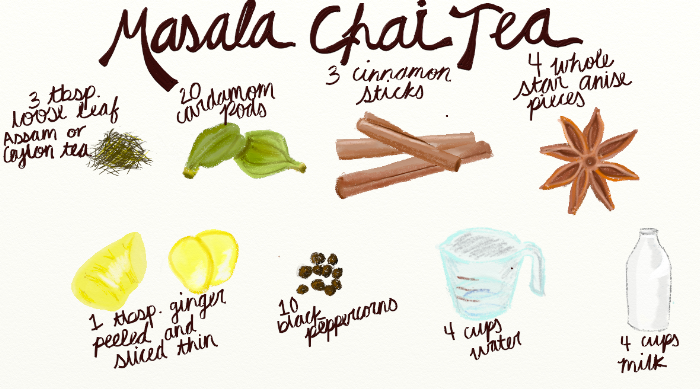 Masala Chai Tea
3 tbsp.
loose leaf
Assam or
Ceylon tea
20
cardamom
pods
3 cinnamon
sticks
4 whole
star anise
pieces
1 tbsp. ginger
peeled and
sliced thin
10
black
peppercorns
4 cups
water
4 cups
milk